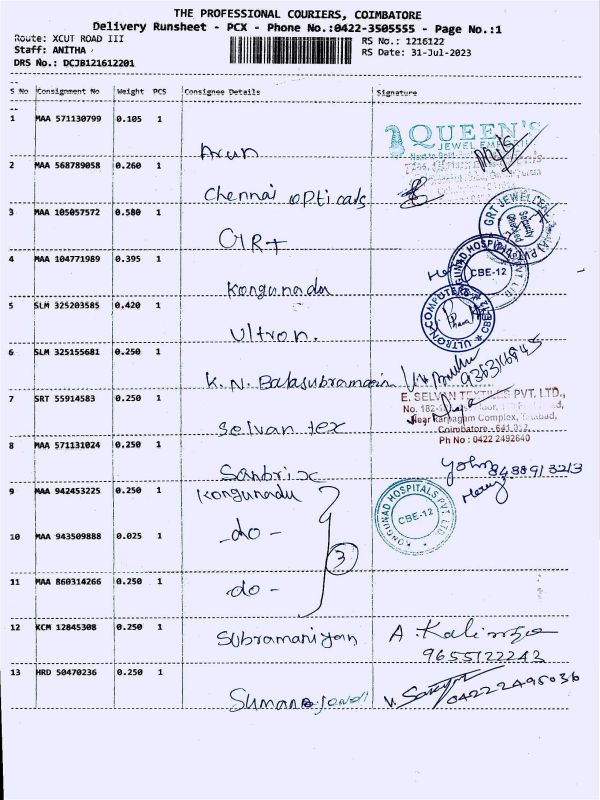 THE PROFESSIONAL COURIERS, COIMBATORE
Delivery Runsheet - PCX - Phone No.:0422-3505555 - Page No.:1
Route: XCUT ROAD III RS No.: 1216122
Staff: ANITHA RS Date: 31-Jul-2023
DRS No.: DCJB121612201
S No Consignment No Weight PCS Consignee Details Signature
1 MAA 571130799 0.105 1
QUEEN'S
JEWEL
Arun
2 MAA 568789058 0.260 1
Chennai opticals
3 MAA 105057572 0.580 1
GRT JEWELLE
Security Checked
GRT
4 MAA 104771989 0.395 1
HOSPITALS PVT LTD
CBE-12
Kongunadu
5 SLM 325203585 0.420 1
ULTRON COMPUTERS CBE
Ultron.
6 SLM 325155681 0.250 1
K. N. Balasubramanian
7 SRT 55914583 0.250 1
E. SELVAN TEXTILES PVT. LTD.,
No. 182-
Near Karpagam Complex,
Coimbatore - 641 012
Ph No : 0422 2492640
Selvan tex
8 MAA 571131024 0.250 1
8488913213
Sanbrix
9 MAA 942453225 0.250 1
Kongunadu
KONGUNAD HOSPITALS PVT. LTD
CBE-12
10 MAA 943509888 0.025 1
-do-
3
11 MAA 860314266 0.250 1
-do-
12 KCM 12845308 0.250 1
Subramaniyan
9655122243
13 HRD 50470236 0.250 1
04222495036